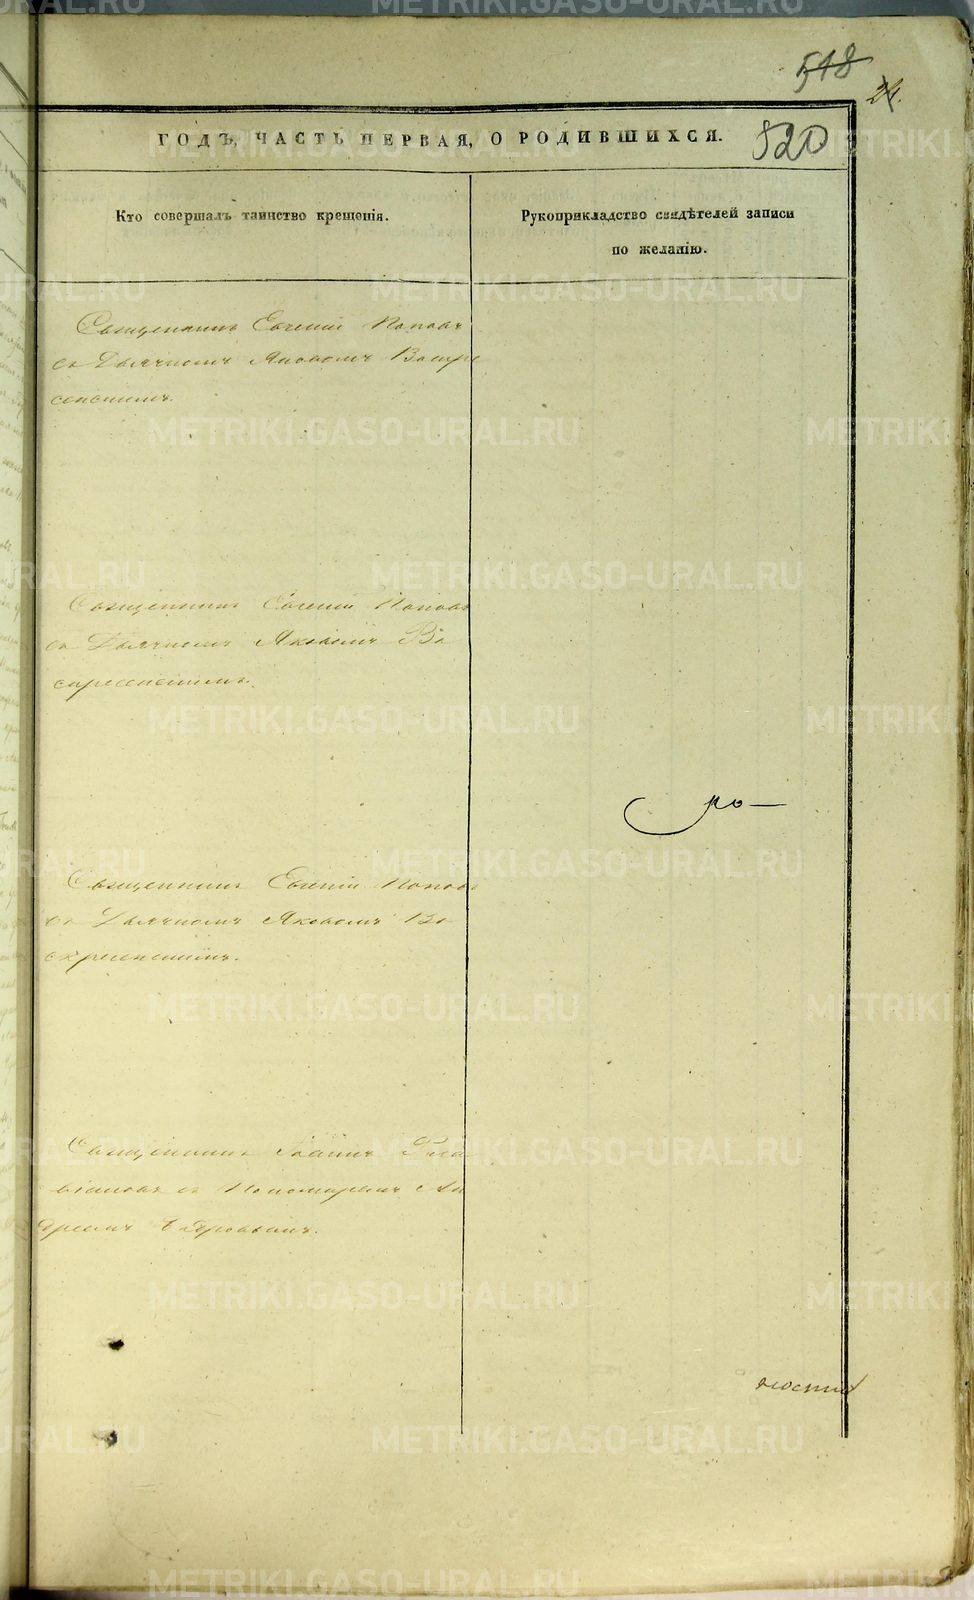 518
24.
ГОДЪ, ЧАСТЬ ПЕРВАЯ, О РОДИВШИХСЯ.
520
Кто совершалъ таинство крещенія.
Рукоприкладство свидѣтелей записи
по желанію.
Священникъ Евгеній Поповъ
съ Дьячкомъ Яковомъ Воскре
сенскимъ.
Священникъ Евгеній Поповъ
съ Дьячкомъ Яковомъ Во
скресенскимъ.
Священникъ Евгеній Поповъ
съ Дьячкомъ Яковомъ Во
скресенскимъ.
Священникъ Іоаннъ
съ Пономаремъ Ан
дреемъ
METRIKI.GASO-URAL.RU